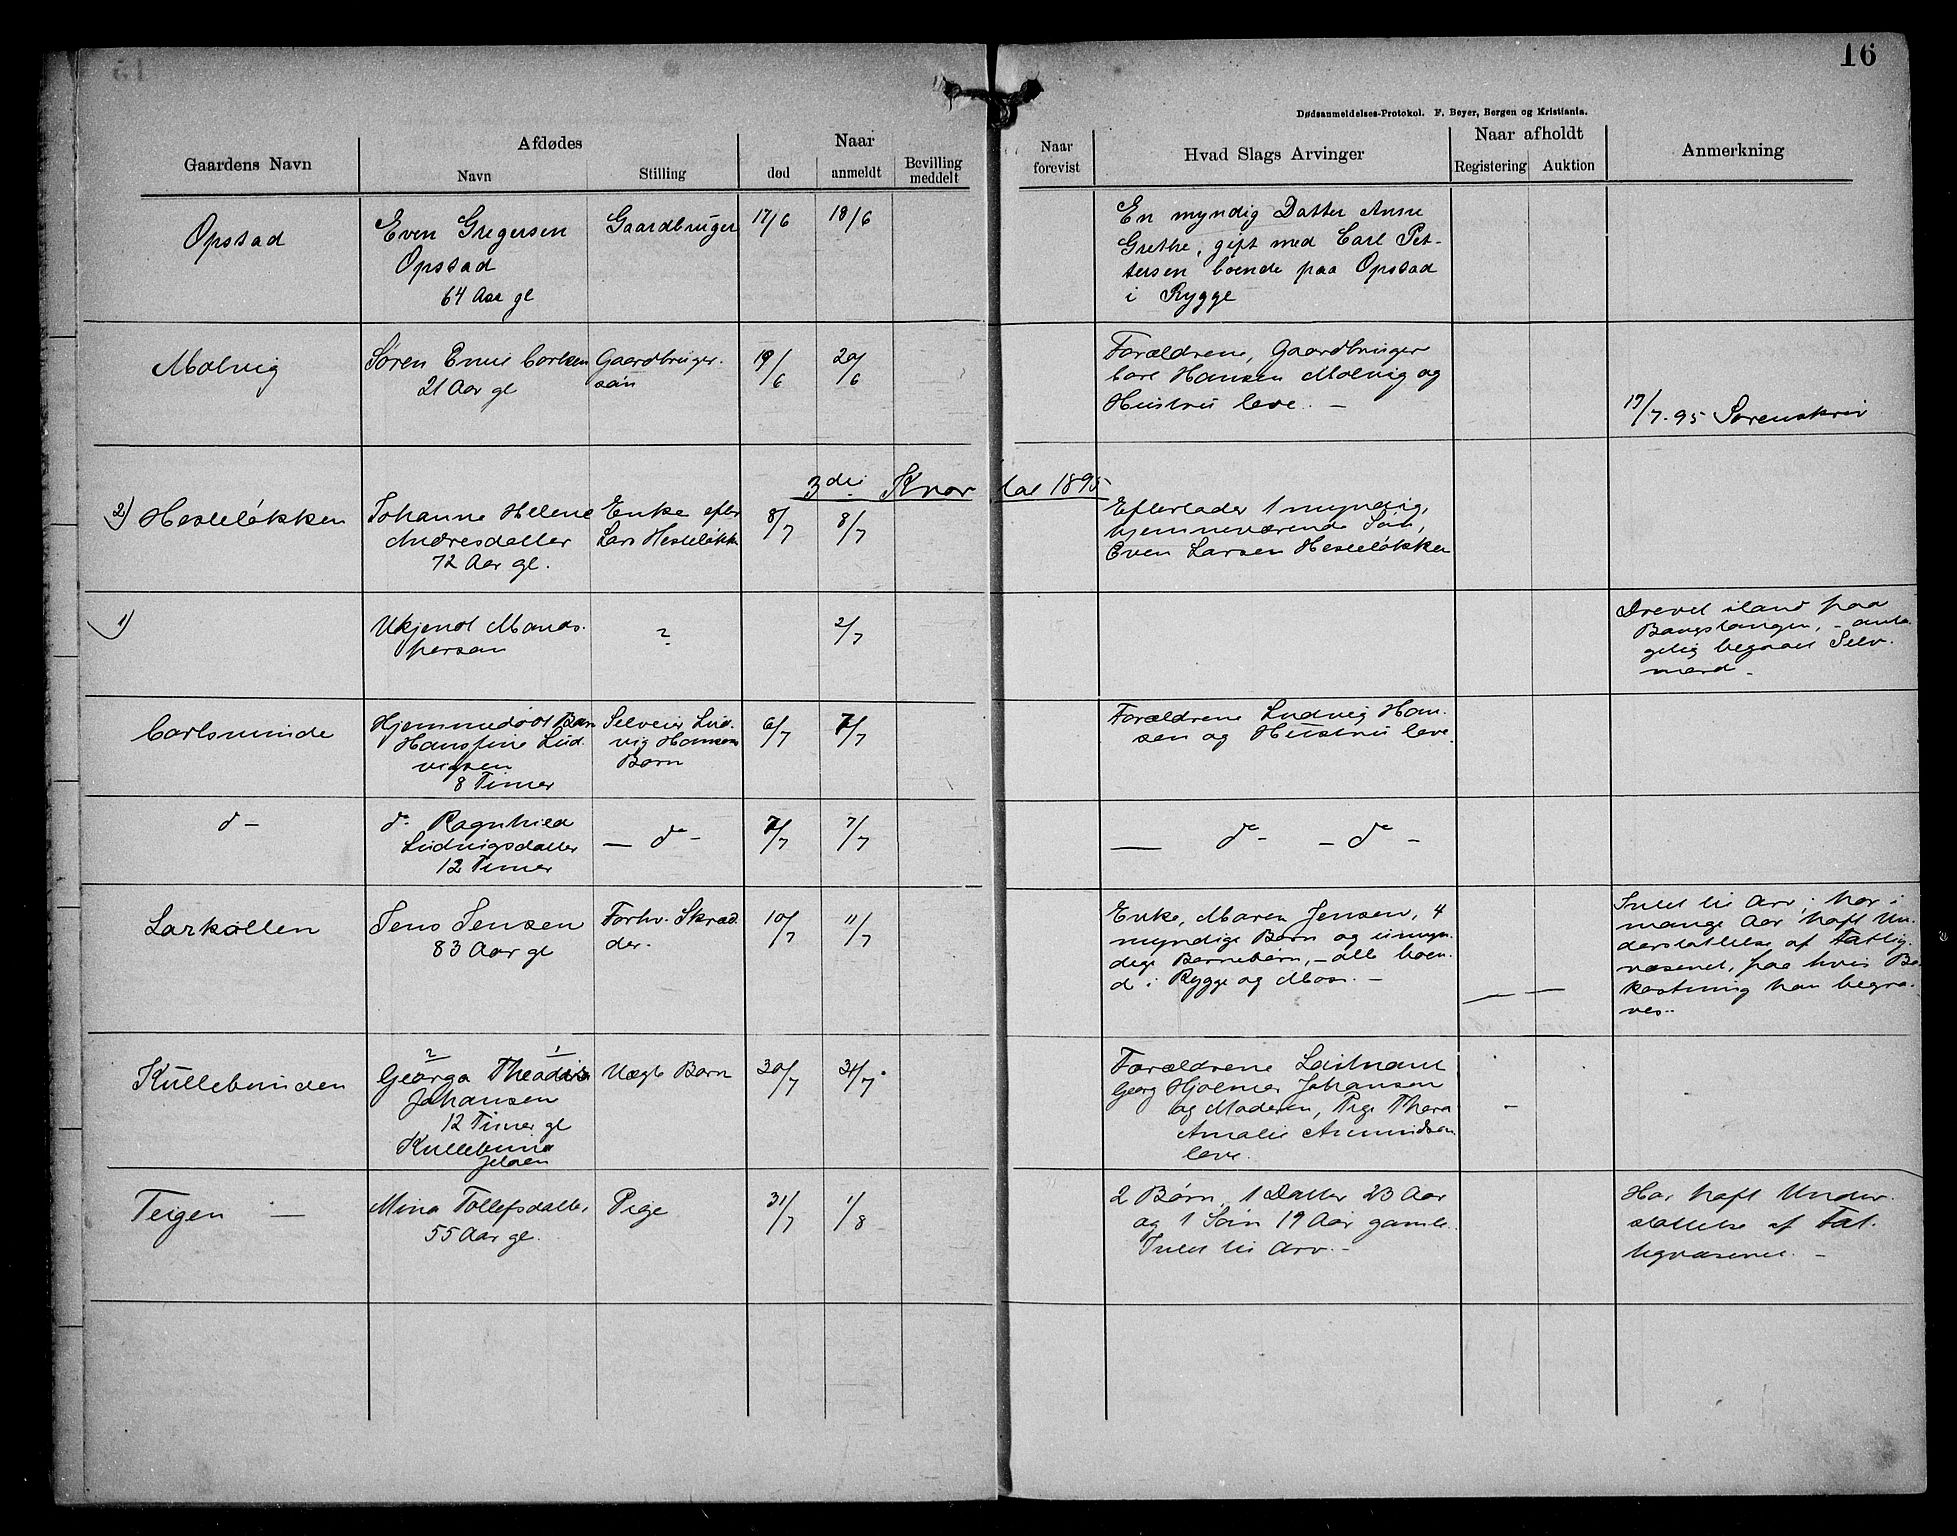 16
Dødsanmeldelses-Protokol. F. Beyer, Bergen og Kristiania.
Gaardens Navn
Afdødes
Navn
Stilling
Naar
død
anmeldt
Bevilling
meddelt
Naar
forevist
Hvad Slags Arvinger
Naar afholdt
Registering
Auktion
Anmerkning
Opstad
Even Gregersen
Opstad
64 Aar gl
Gaardbruger
17/6
18/6
En myndig Datter Anne
Grethe, gift med Carl Pet-
tersen boende paa Opstad
i Rygge
Molvig
Søren Emil Carlsen
21 Aar gl
Gaardbruger.
søn
19/6
20/6
Forældrene, Gaardbruger
Carl Hansen Molvig og
Hustru leve. —
19/7. 95 Sorenskriv
3die Kvartal 1895
2) Hesteløkken
Johanne Helene
Andresdatter
72 Aar gl.
Enke efter
Lars Hesteløkk
8/7
8/7
Efterlader 1 myndig,
hjemmeværende Søn,
Even Larsen Hesteløkken
1)
Ukjendt Mands-
person
?
2/7
Drevet iland paa
Bangstangen, - anta-
gelig begaaet Selv-
mord -
Carlsminde
Hjemmedøbt Barn
Hansine Lud-
vigsen
8 Timer
Selveier Lud-
vig Hansens
Barn
6/7
7/7
Forældrene Ludvig Han-
sen og Hustru leve.
do -
do Ragnhild
Ludvigsdatter
12 Timer
— do -
7/7
7/7
— do - - do -
Larkollen
Jens Jensen
83 Aar gl
Forhv. Skræd-
der.
10/7
11/7
Enke, Maren Jensen, 4
myndige Børn og umyn-
dige Børnebørn, - alle boen-
d i Rygge og Moss. -
— —
Intet til Arv; har i
mange Aar haft Un-
derstøttelse af Fattig-
væsenet, paa hvis Be-
kostning han begra-
ves.-
Kullebunden
2 1
Georga Theodora
Johansen
12 Timer gl
Kullebund
Jeløen
Uægte Barn
30/7
31/7.
Forældrene Løitnant
Georg Hjalmar Johansen
og Moderen, Pige Thora
Amalie Amundsen
leve.
-
Teigen —
Mina Tollefsdatter
55 Aar gl.
Pige
31/7
1/8
2 Børn, 1 Datter 23 Aar
og 1 Søn 19 Aar gamle.
Intet til Arv. -
Har haft Under-
støttelse af Fat-
tigvæsenet. -